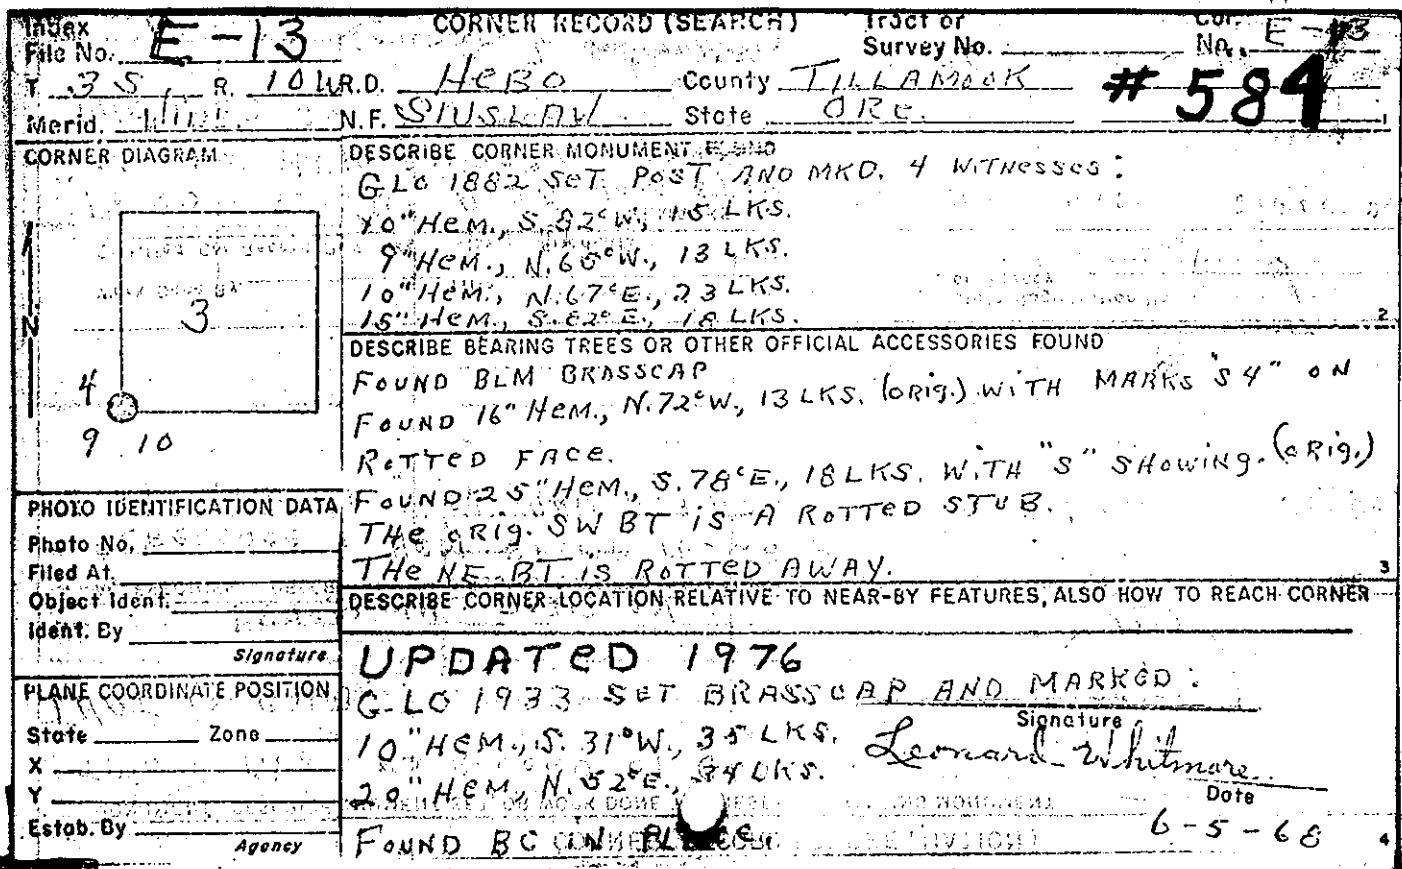 Index File No. E-13
CORNER RECORD (SEARCH)
Tract or Survey No.
Cor. No. E-13
T. 3S, R. 10W R.D. HEBO County TILLAMOOK # 584
Merid. Will. N.F. SIUSLAW State ORE. 1
CORNER DIAGRAM
N
3
4
9 10
DESCRIBE CORNER MONUMENT FOUND
GLO 1882 SET POST AND MKD. 4 WITNESSES:
10" HEM., S. 82°W, 15 LKS.
9" HEM., N. 65°W., 13 LKS.
10" HEM., N. 67°E., 23 LKS.
15" HEM., S. 82° E., 18 LKS.
2
DESCRIBE BEARING TREES OR OTHER OFFICIAL ACCESSORIES FOUND
FOUND BLM BRASSCAP
FOUND 16" HEM., N. 72°W., 13 LKS. (ORIG.) WITH MARKS "S 4" ON
ROTTED FACE.
FOUND 25" HEM., S. 78°E., 18 LKS. WITH "S" SHOWING. (ORIG.)
THE ORIG. SW BT IS A ROTTED STUB.
THE NE BT IS ROTTED AWAY.
3
PHOTO IDENTIFICATION DATA
Photo No.
Filed At.
Object Ident.
Ident. By
Signature
DESCRIBE CORNER LOCATION RELATIVE TO NEAR-BY FEATURES, ALSO HOW TO REACH CORNER
UPDATED 1976
GLO 1933 SET BRASSCAP AND MARKED:
10" HEM., S. 31°W., 35 LKS.
20" HEM, N. 52°E., 34 LKS.
FOUND BC IN PLACE
Signature
Leonard Whitmore
Date
6-5-68
4
PLANE COORDINATE POSITION
State Zone
X
Y
Estab. By
Agency